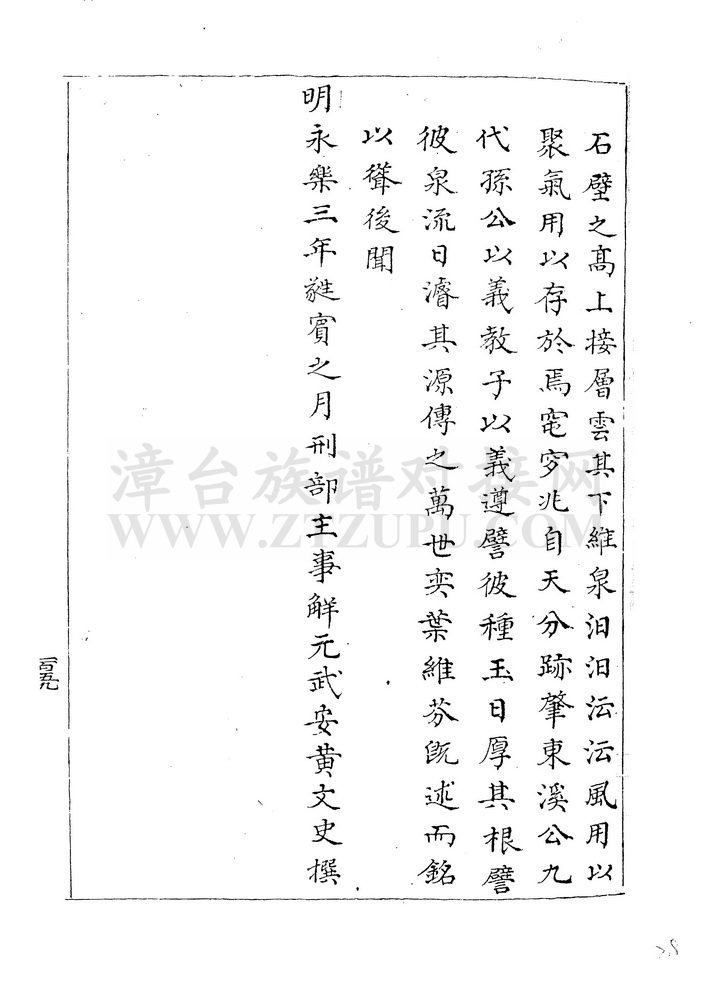 石壁之髙上接層雲其下維泉汩汩沄沄風用以
聚氣用以存於焉窀穸兆自天分跡肇東溪公九
代孫公以義教子以義遵譬彼種玉日厚其根譬
彼泉流日濬其源傳之萬世奕葉維芬旣述而銘
以聳後聞
明永樂三年蕤賓之月刑部主事解元武安黄文史撰
一百五九
漳台族谱对接网
WWW.ZTZUPU.COM